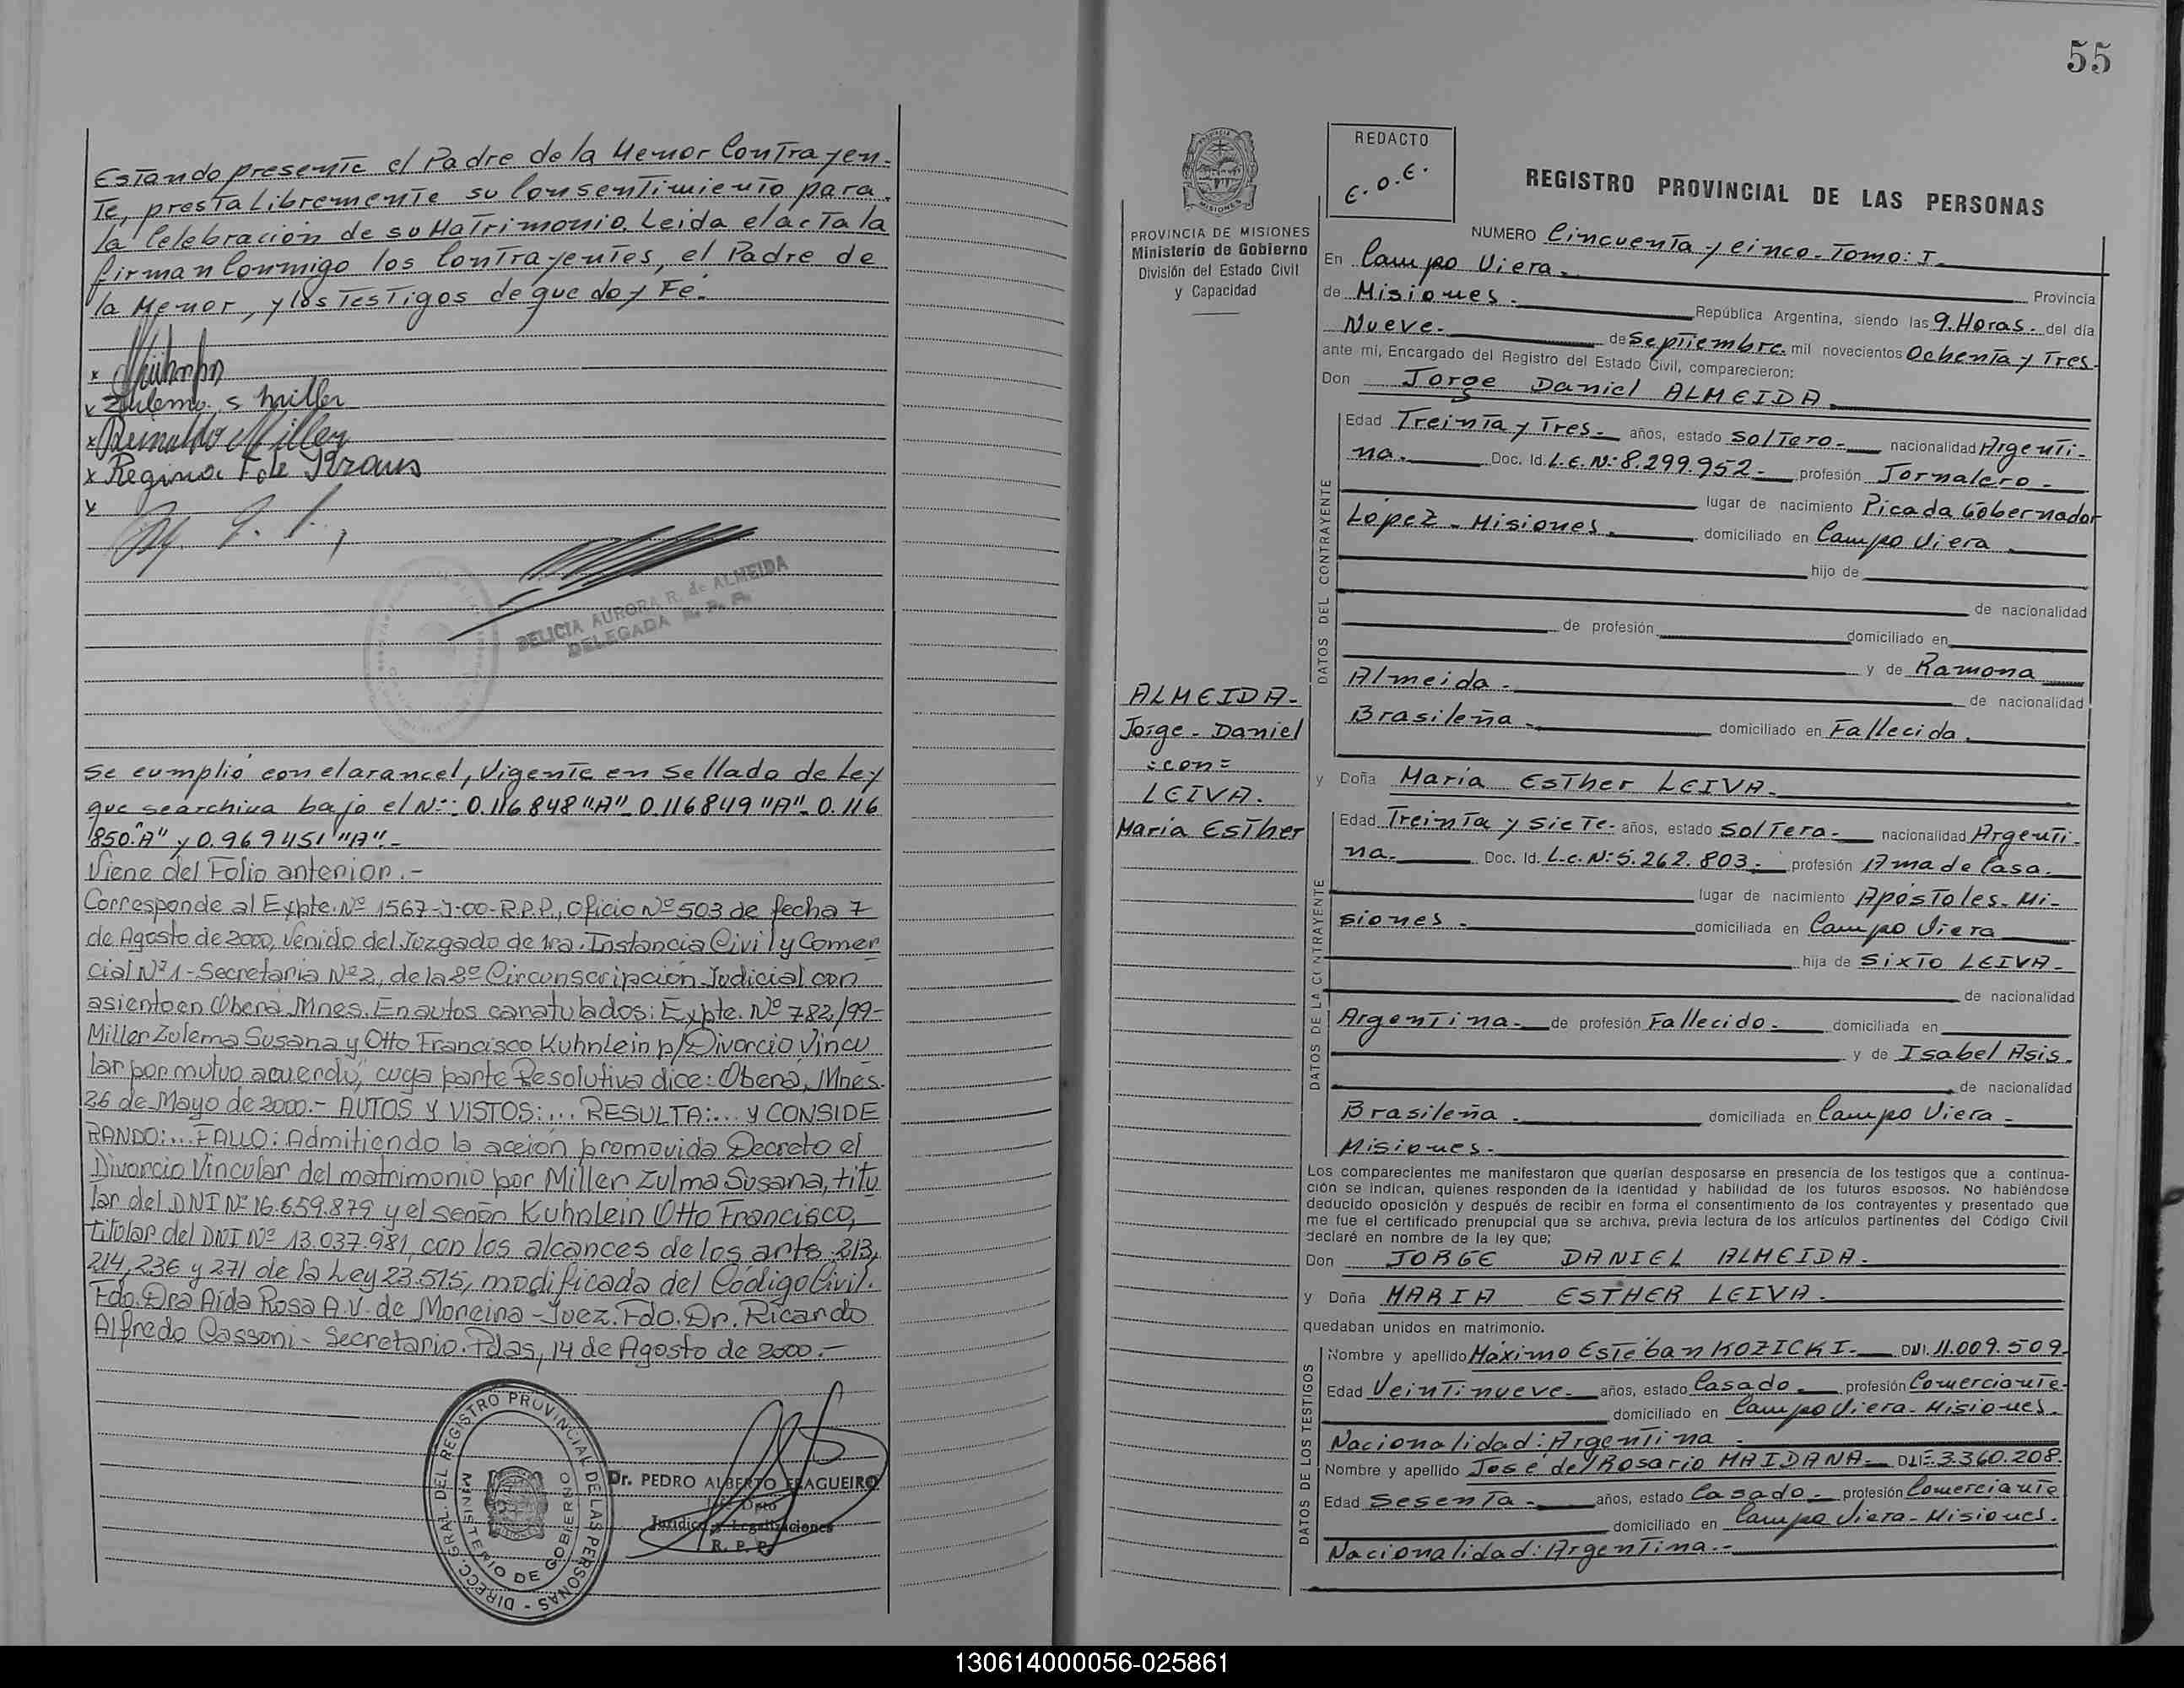 Estando presente el Padre de la Menor Contrayen-
Te, presta Libremente su Consentimiento para
la Celebración de su Matrimonio. Leida el acta la
firman Conmigo los Contrayentes, el Padre de
la Menor, y los Testigos de que doy Fé.
x
x Zulema S Miller
x Reinaldo Miller
x Regina F de Kraus
x
DELICIA AURORA R. de ALMEIDA
DELEGADA R. P. P.
Se cumplió con el arancel, Vigente en Sellado de Ley
que se archiva bajo el Nº: 0.116.848 "A"- 0.116849 "A"- 0.116
850."A" y 0.969451 "A".-
Viene del Folio anterior.-
Corresponde al Expte. Nº 1567-J-00-R.P.P., Oficio Nº 503 de fecha 7
de Agosto de 2000, venido del Juzgado de 1ra. Instancia Civil y Comer
cial Nº 1 - Secretaría Nº 2, de la 2º Circunscripción Judicial con
asiento en Oberá, Mnes. En autos caratulados: Expte. Nº 782/99-
Miller Zulema Susana y Otto Francisco Kuhnlein p/Divorcio Vincu
lar por mutuo acuerdo", cuya parte Resolutiva dice: Oberá, Mnes.
26 de Mayo de 2000.- AUTOS Y VISTOS:... RESULTA:... y CONSIDE
RANDO:... FALLO: Admitiendo la acción promovida Decreto el
Divorcio Vincular del matrimonio por Miller Zulma Susana, titu
lar del DNI Nº 16.659.879 y el señor Kuhnlein Otto Francisco,
titular del DNI Nº 13.037.981, con los alcances de los arts. 213,
214, 236 y 271 de la Ley 23.515, modificada del Código Civil.
Fdo. Dra Aída Rosa A.V. de Moreira - Juez. Fdo. Dr. Ricardo
Alfredo Cassoni - Secretario. Pdas, 14 de Agosto de 2000.-
DIRECC. GRAL. DEL REGISTRO PROVINCIAL DE LAS PERSONAS -
MINISTERIO DE GOBIERNO
MISIONES
Dr. PEDRO ALBERTO FRAGUEIRO
Dpto
Jurídico y Legalizaciones
R. P. P.
55
PROVINCIA
MISIONES
PROVINCIA DE MISIONES
Ministerio de Gobierno
División del Estado Civil
y Capacidad
ALMEIDA-
Jorge - Daniel
=con=
LEIVA.
Maria Esther
REDACTO
E.O.E.
REGISTRO PROVINCIAL DE LAS PERSONAS
NUMERO Cincuenta y cinco - Tomo: I.
En Campo Viera.
Provincia
de Misiones.
República Argentina, siendo las 9. Horas. del día
Nueve. de Septiembre. mil novecientos Ochenta y Tres.
ante mí, Encargado del Registro del Estado Civil, comparecieron:
Don Jorge Daniel ALMEIDA.
DATOS DEL CONTRAYENTE
Edad Treinta y Tres.- años, estado Soltero.- nacionalidad Argenti-
na. Doc. Id. L.E. Nº: 8.299.952- profesión Jornalero -
lugar de nacimiento Picada Gobernador
López - Misiones. domiciliado en Campo Viera.
hijo de
de nacionalidad
de profesión domiciliado en
y de Ramona
Almeida - de nacionalidad
Brasileña - domiciliado en Fallecida.
y Doña Maria Esther LEIVA.
DATOS DE LA CONTRAYENTE
Edad Treinta y Siete- años, estado Soltera- nacionalidad Argenti-
na. Doc. Id. L.C. Nº: 5.262.803- profesión Ama de Casa.
lugar de nacimiento Apóstoles- Mi-
siones - domiciliada en Campo Viera
hija de Sixto LEIVA-
de nacionalidad
Argentina.- de profesión Fallecido. domiciliada en
y de Isabel Asis.
de nacionalidad
Brasileña - domiciliada en Campo Viera -
Misiones.-
Los comparecientes me manifestaron que querían desposarse en presencia de los testigos que a continua-
ción se indican, quienes responden de la identidad y habilidad de los futuros esposos. No habiéndose
deducido oposición y después de recibir en forma el consentimiento de los contrayentes y presentado que
me fue el certificado prenupcial que se archiva, previa lectura de los artículos pertinentes del Código Civil
declaré en nombre de la ley que;
Don JORGE DANIEL ALMEIDA.
y Doña MARIA ESTHER LEIVA.
quedaban unidos en matrimonio.
DATOS DE LOS TESTIGOS
Nombre y apellido Máximo Estéban KOZICKI- DNI. 11.009.509
Edad Veintinueve.- años, estado Casado. profesión Comerciante-
domiciliado en Campo Viera - Misiones.
Nacionalidad: Argentina -
Nombre y apellido José del Rosario MAIDANA- 3.360.208.
Edad Sesenta - años, estado Casado - profesión Comerciante
domiciliado en Campo Viera - Misiones.
Nacionalidad: Argentina.-
130614000056-025861